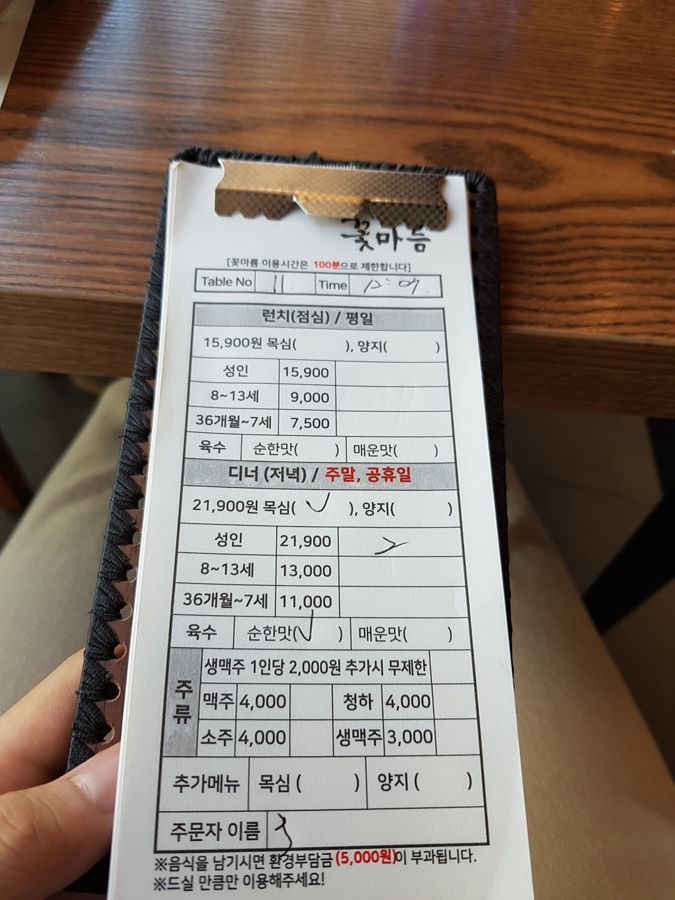 꽃마름
[꽃마름 이용시간은 100분으로 제한합니다]
Table No 11. Time 12:07.
런치(점심) / 평일
15,900원 목심( ), 양지( )
성인 15,900
8~13세 9,000
36개월~7세 7,500
육수 순한맛( ) 매운맛( )
디너 (저녁) / 주말, 공휴일
21,900원 목심( ✓ ), 양지( )
성인 21,900 2
8~13세 13,000
36개월~7세 11,000
육수 순한맛(✓ ) 매운맛( )
주류
생맥주 1인당 2,000원 추가시 무제한
맥주 4,000 청하 4,000
소주 4,000 생맥주 3,000
추가메뉴 목심 ( ) 양지 ( )
주문자 이름
※음식을 남기시면 환경부담금 (5,000원)이 부과됩니다.
※드실 만큼만 이용해주세요!